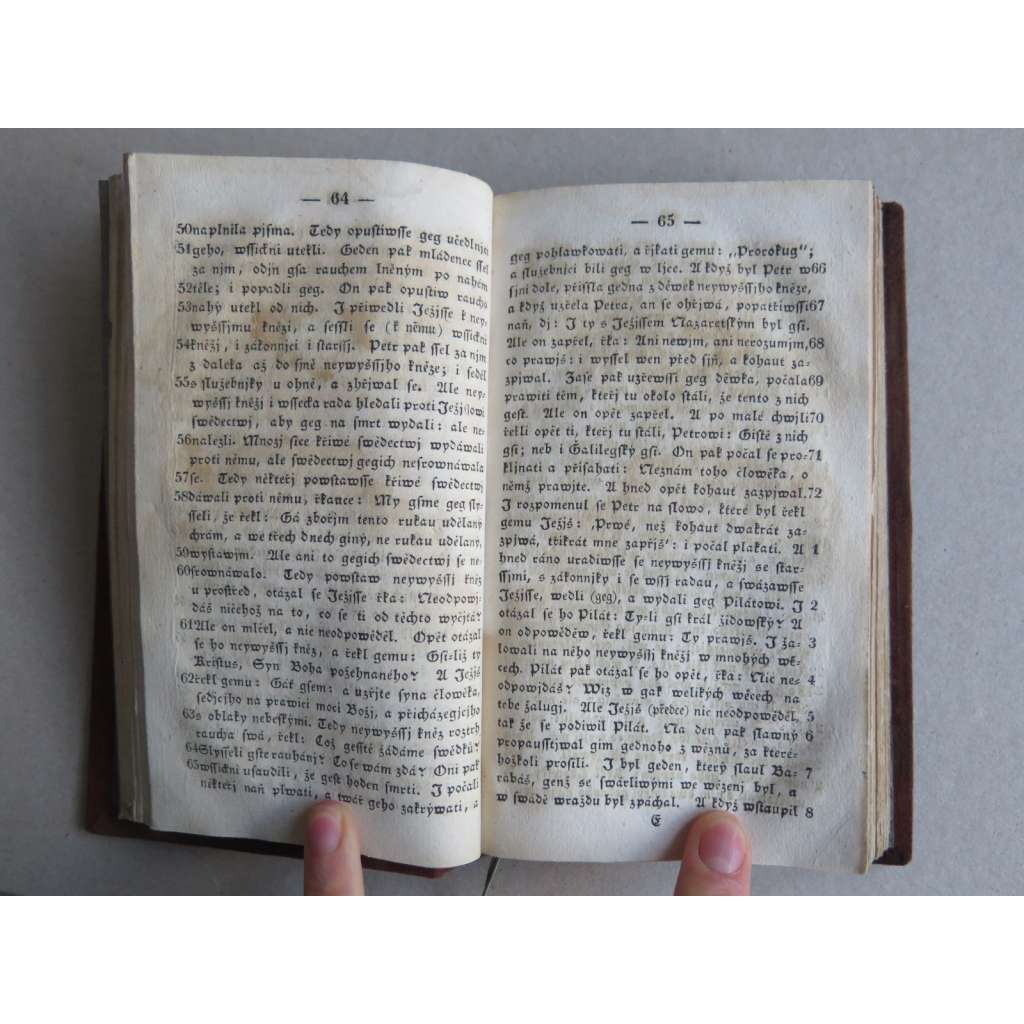 — 64 —
50naplnila pjſma. Tedy opuſtiwſſe geg učedlnjcy
51geho, wſſickni utekli. Geden pak mládenec ſſel
za njm, odjn gſa rauchem lněným po nahém
52těle; i popadli geg. On pak opuſtiw raucho
53nahý utekl od nich. I přiwedli Ježjſſe k ney-
wyšſſjmu knězi, a ſeſſli ſe (k němu) wſſickni
54kněžj, i zákonnjci i ſtarſſj. Petr pak ſſel za njm
z daleka až do ſjně neywyšſſjho kněze; i ſeděl
55s ſlužebnjky u ohně, a zhřjwal ſe. Ale ney-
wyšſſj kněžj i wſſecka rada hledali proti Ježjſſowi
ſwědectwj, aby geg na ſmrt wydali: ale ne-
56nalezli. Mnozj ſice křiwé ſwědectwj wydáwali
proti němu, ale ſwědectwj gegich neſrownáwala
57ſe. Tedy někteřj powſtawſſe křiwé ſwědectwj
58dáwali proti němu, řkauce: My gſme geg ſly-
ſſeli, že řekl: Gá zbořjm tento rukau udělaný
chrám, a we třech dnech giný, ne rukau udělaný,
59wyſtawjm. Ale ani to gegich ſwědectwj ſe ne-
60ſrownáwalo. Tedy powſtaw neywyšſſj kněz
u proſtřed, otázal ſe Ježjſſe řka: Neodpowj-
dáš ničehož na to, co ſe ti od těchto wyčjtá?
61Ale on mlčel, a nic neodpowěděl. Opět otázal
ſe ho neywyšſſj kněz, a řekl gemu: Gſi-liž ty
Kriſtus, Syn Boha požehnaného? A Ježjš
62řekl gemu: Gáť gſem: a uzřjte ſyna člowěka,
ſedjcjho na prawici moci Božj, a přicházegjcjho
63s oblaky nebeſkými. Tedy neywyšſſj kněz roztrh
raucha ſwá, řekl: Což geſſtě žádáme ſwědků?
64Slyſſeli gſte rauhánj? Co ſe wám zdá? Oni pak
65wſſickni uſaudili, že geſt hoden ſmrti. I počali
někteřj naň plwati, a twář geho zakrýwati, a
— 65 —
geg pohlawkowati, a řjkati gemu: „Prorokug“;
a ſlužebnjci bili geg w ljce. A když byl Petr w66
ſjni dole, přiſſla gedna z děwek neywyšſſjho kněze,
a když uzřela Petra, an ſe ohřjwá, popatřiwſſi67
naň, dj: I ty s Ježjſſem Nazaretſkým byl gſi.
Ale on zapřel, řka: Ani newjm, ani nerozumjm,68
co prawjš: i wyſſel wen před ſjň, a kohaut za-
zpjwal. Zaſe pak uzřewſſi geg děwka, počala69
prawiti těm, kteřj tu okolo ſtáli, že tento z nich
geſt. Ale on opět zapřel. A po malé chwjli70
řekli opět ti, kteřj tu ſtáli, Petrowi: Giſtě z nich
gſi; neb i Galilegſký gſi. On pak počal ſe pro-71
kljnati a přiſahati: Neznám toho člowěka, o
němž prawjte. A hned opět kohaut zazpjwal.72
I rozpomenul ſe Petr na ſlowo, které byl řekl
gemu Ježjš: „Prwé, než kohaut dwakrát za-
zpjwá, třikrát mne zapřjš‘: i počal plakati. A 1
hned ráno uradiwſſe ſe neywyšſſj kněžj ſe ſtar-
ſſjmi, s zákonnjky i ſe wſſj radau, a ſwázawſſe
Ježjſſe, wedli (geg), a wydali geg Pilátowi. I 2
otázal ſe ho Pilát: Ty-li gſi král židowſký? A
on odpowěděw, řekl gemu: Ty prawjš. I ža- 3
lowali na něho neywyšſſj kněžj w mnohých wě-
cech. Pilát pak otázal ſe ho opět, řka: Nic ne- 4
odpowjdáš? Wiz w gak welikých wěcech na
tebe žalugj. Ale Ježjš (předce) nic neodpowěděl, 5
tak že ſe podiwil Pilát. Na den pak ſlawný 6
propauſſtjwal gim gednoho z wězňů, za které-
hožkoli proſili. I byl geden, který ſlaul Ba- 7
rabáš, genž ſe ſwárliwými we wězenj byl, a
w ſwádě wraždu byl zpáchal. A když wſtaupil 8
E